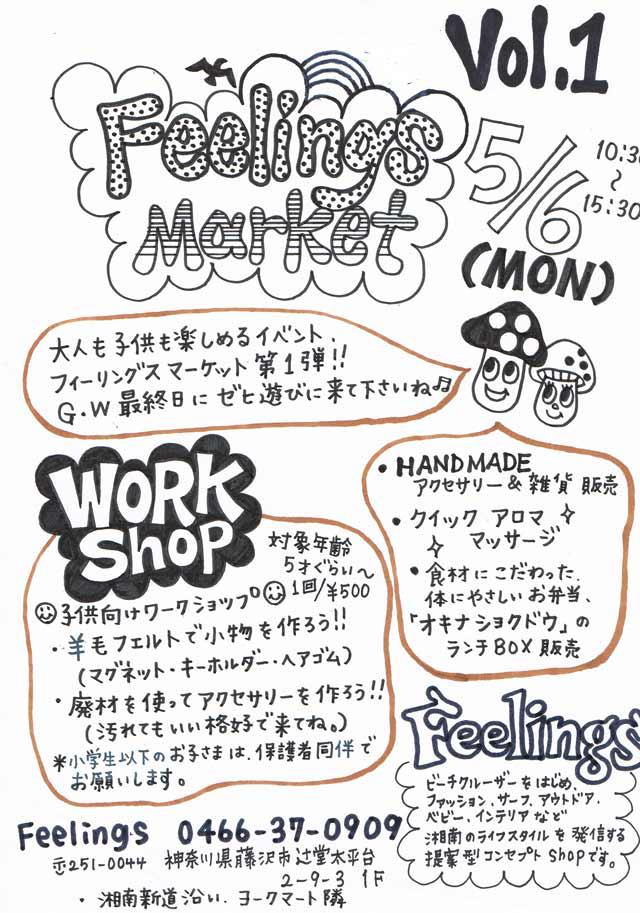 Vol.1
Feelings
Market
5/6
10:30
～
15:30
(MON)
大人も子供も楽しめるイベント、
フィーリングス マーケット 第1弾!!
G.W 最終日に ゼヒ遊びに来て下さいね♬
WORK
Shop
対象年齢
5才ぐらい〜
1回/¥500
☺子供向けワークショップ☺
・羊毛フェルトで小物を作ろう!!
(マグネット・キーホルダー・ヘアゴム)
・廃材を使ってアクセサリーを作ろう!!
(汚れてもいい格好で来てね。)
*小学生以下のお子さまは、保護者同伴で
お願いします。
・HANDMADE
アクセサリー & 雑貨 販売
・クイック アロマ
マッサージ
・食材にこだわった、
体にやさしいお弁当、
「オキナショクドウ」の
ランチBOX 販売
Feelings
ビーチクルーザーをはじめ、
ファッション、サーフ、アウトドア、
ベビー、インテリア など
湘南のライフスタイルを発信する
提案型コンセプトShopです。
Feelings 0466-37-0909
〒251-0044 神奈川県藤沢市辻堂太平台
2-9-3 1F
・湘南新道沿い、ヨークマート隣